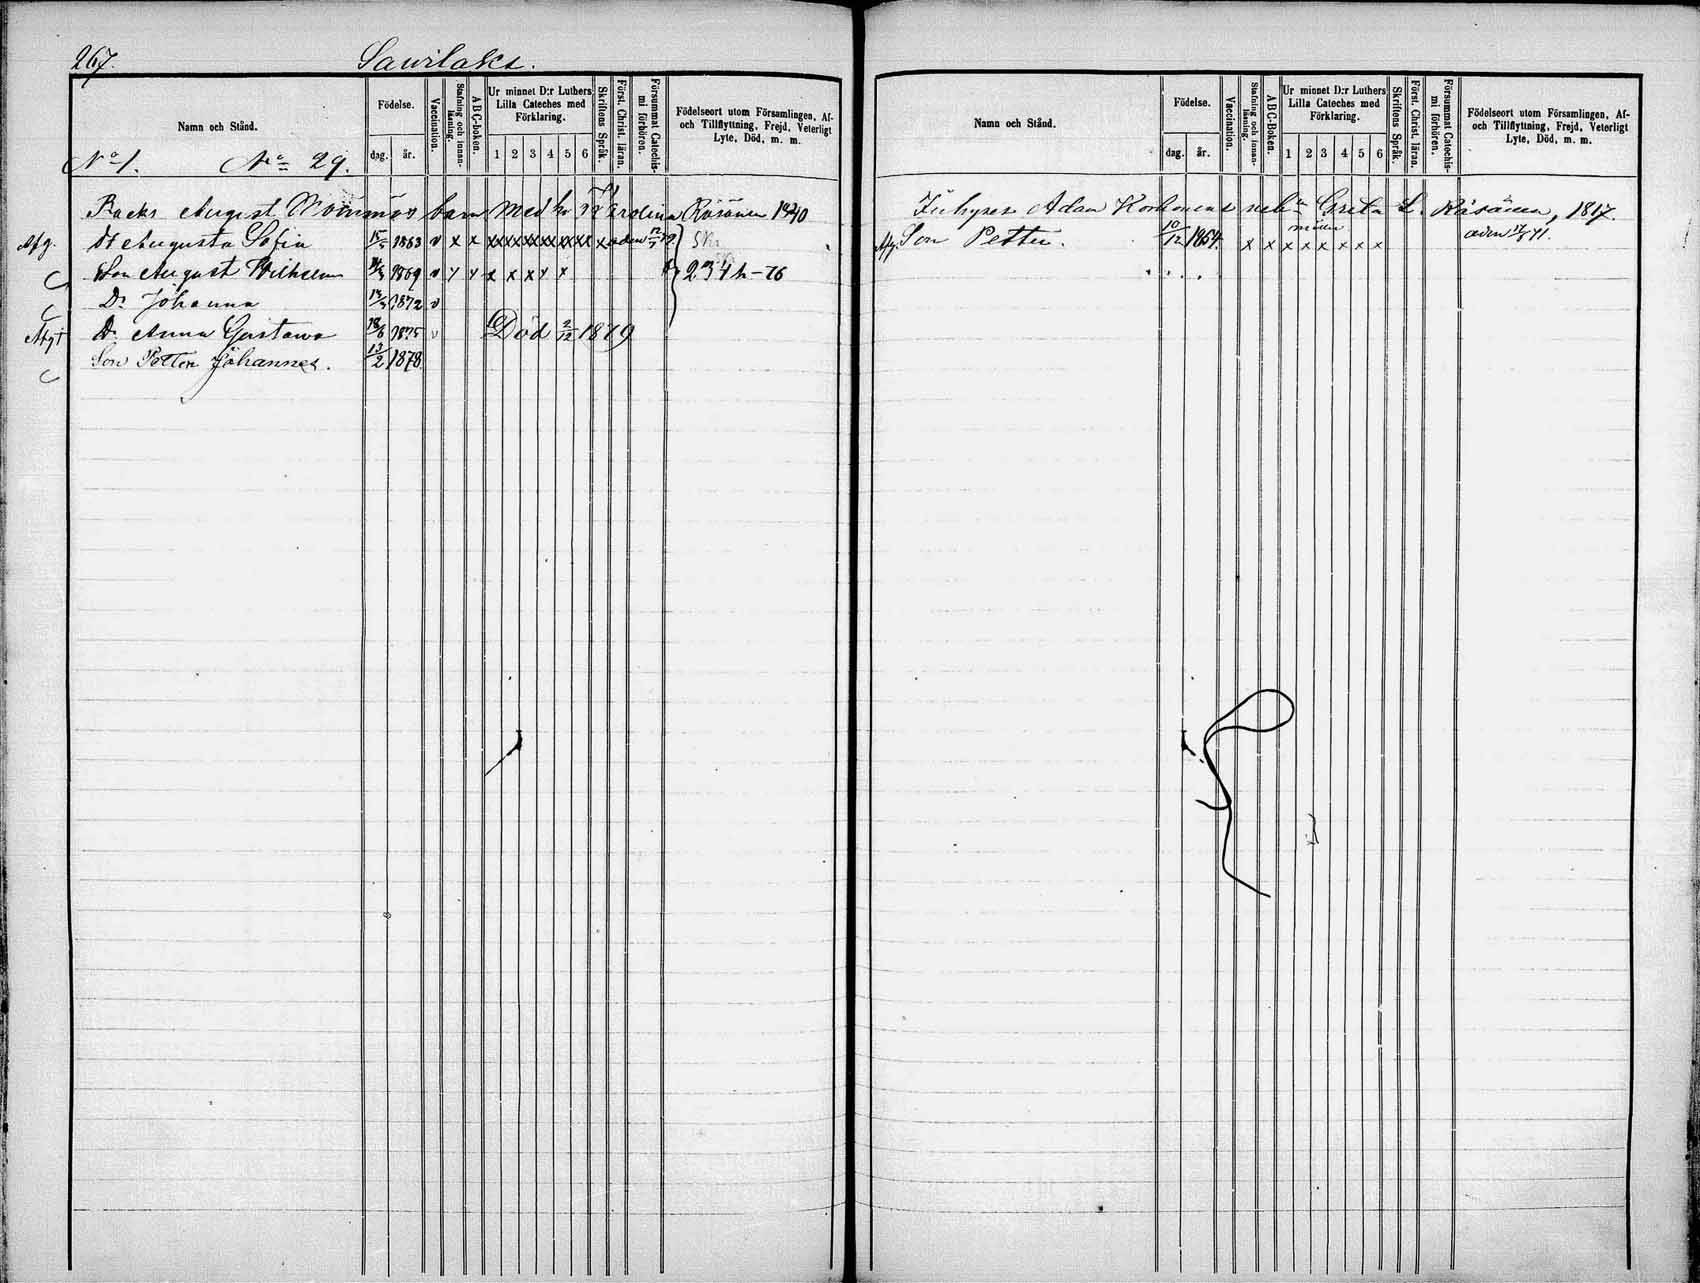 267.
Sawilaks.
Namn och Stånd.
Födelse.
dag. år.
Vaccination.
Stafning och innanläsning.
ABC-boken.
Ur minnet D:r Luthers Lilla Cateches med Förklaring.
1 2 3 4 5 6
Skriftens Språk.
Först. Christ. läran.
Försummat Catechismi förhören.
Födelseort utom Församlingen, Af- och Tillflyttning, Frejd, Veterligt Lyte, Död, m. m.
No 1. No 29.
August barn med h. Räsänen 1840
Afg. Dr Augusta Sofia 1863 v x x xx xx xx xx xx xx x
Son August Wilhelm 1869 v y y x x x y x 234 h-76
Dr Johanna 1872 v
Dr Anna Gustawa 18/6 1875 v Död 2/12 1879
Son Petter Johannes. 13/2 1878.
Namn och Stånd.
Födelse.
dag. år.
Vaccination.
Stafning och innanläsning.
ABC-Boken.
Ur minnet D:r Luthers Lilla Cateches med Förklaring.
1 2 3 4 5 6
Skriftens Språk.
Först. Christ. läran.
Försummat Catechismi förhören.
Födelseort utom Församlingen, Af- och Tillflyttning, Frejd, Veterligt Lyte, Död, m. m.
Inhyses Adam Korhonens Greta L. Räsänen, 1817.
Afg. Son Petter. 10/12 1854. x x x x x x x x